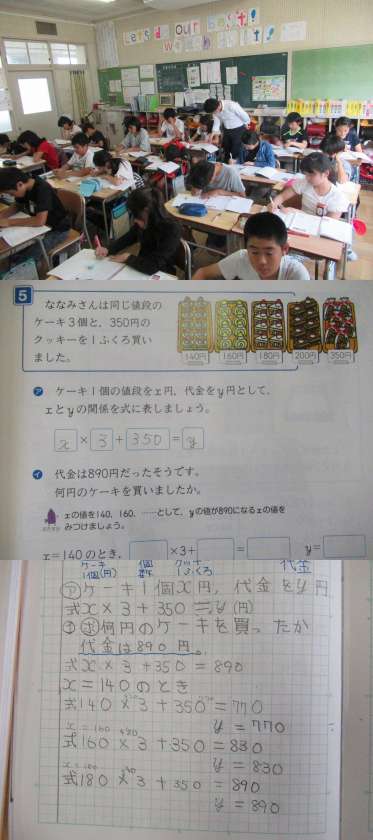 Let's do our best!
5
ななみさんは同じ値段の
ケーキ3個と、350円の
クッキーを1ふくろ買い
ました。
140円 160円 180円 200円 350円
ア ケーキ1個の値段をx円、代金をy円として、
xとyの関係を式に表しましょう。
x × 3 + 350 = y
イ 代金は890円だったそうです。
何円のケーキを買いましたか。
xの値を140、160、……として、yの値が890になるxの値を
みつけましょう。
x=140のとき、 ×3+ = y=
ケーキ 個 クッキー 代金
1個(円) 数 1ふくろ
ア ケーキ1個x円、代金をy円
式 x × 3 + 350 = y (円)
イ 求 何円のケーキを買ったか
代金は890円。
式 x × 3 + 350 = 890
x = 140のとき
式 140 × 3 + 350 = 770
y = 770
x = 160 480
式 160 × 3 + 350 = 830
y = 830
式 180 × 3 + 350 = 890
y = 890